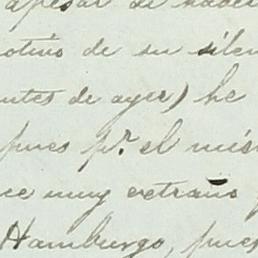 apesar de haber
motivo de su silen
antes de ayer) he
pues pr. el mis
ce muy extraño
Hamburgo, pues